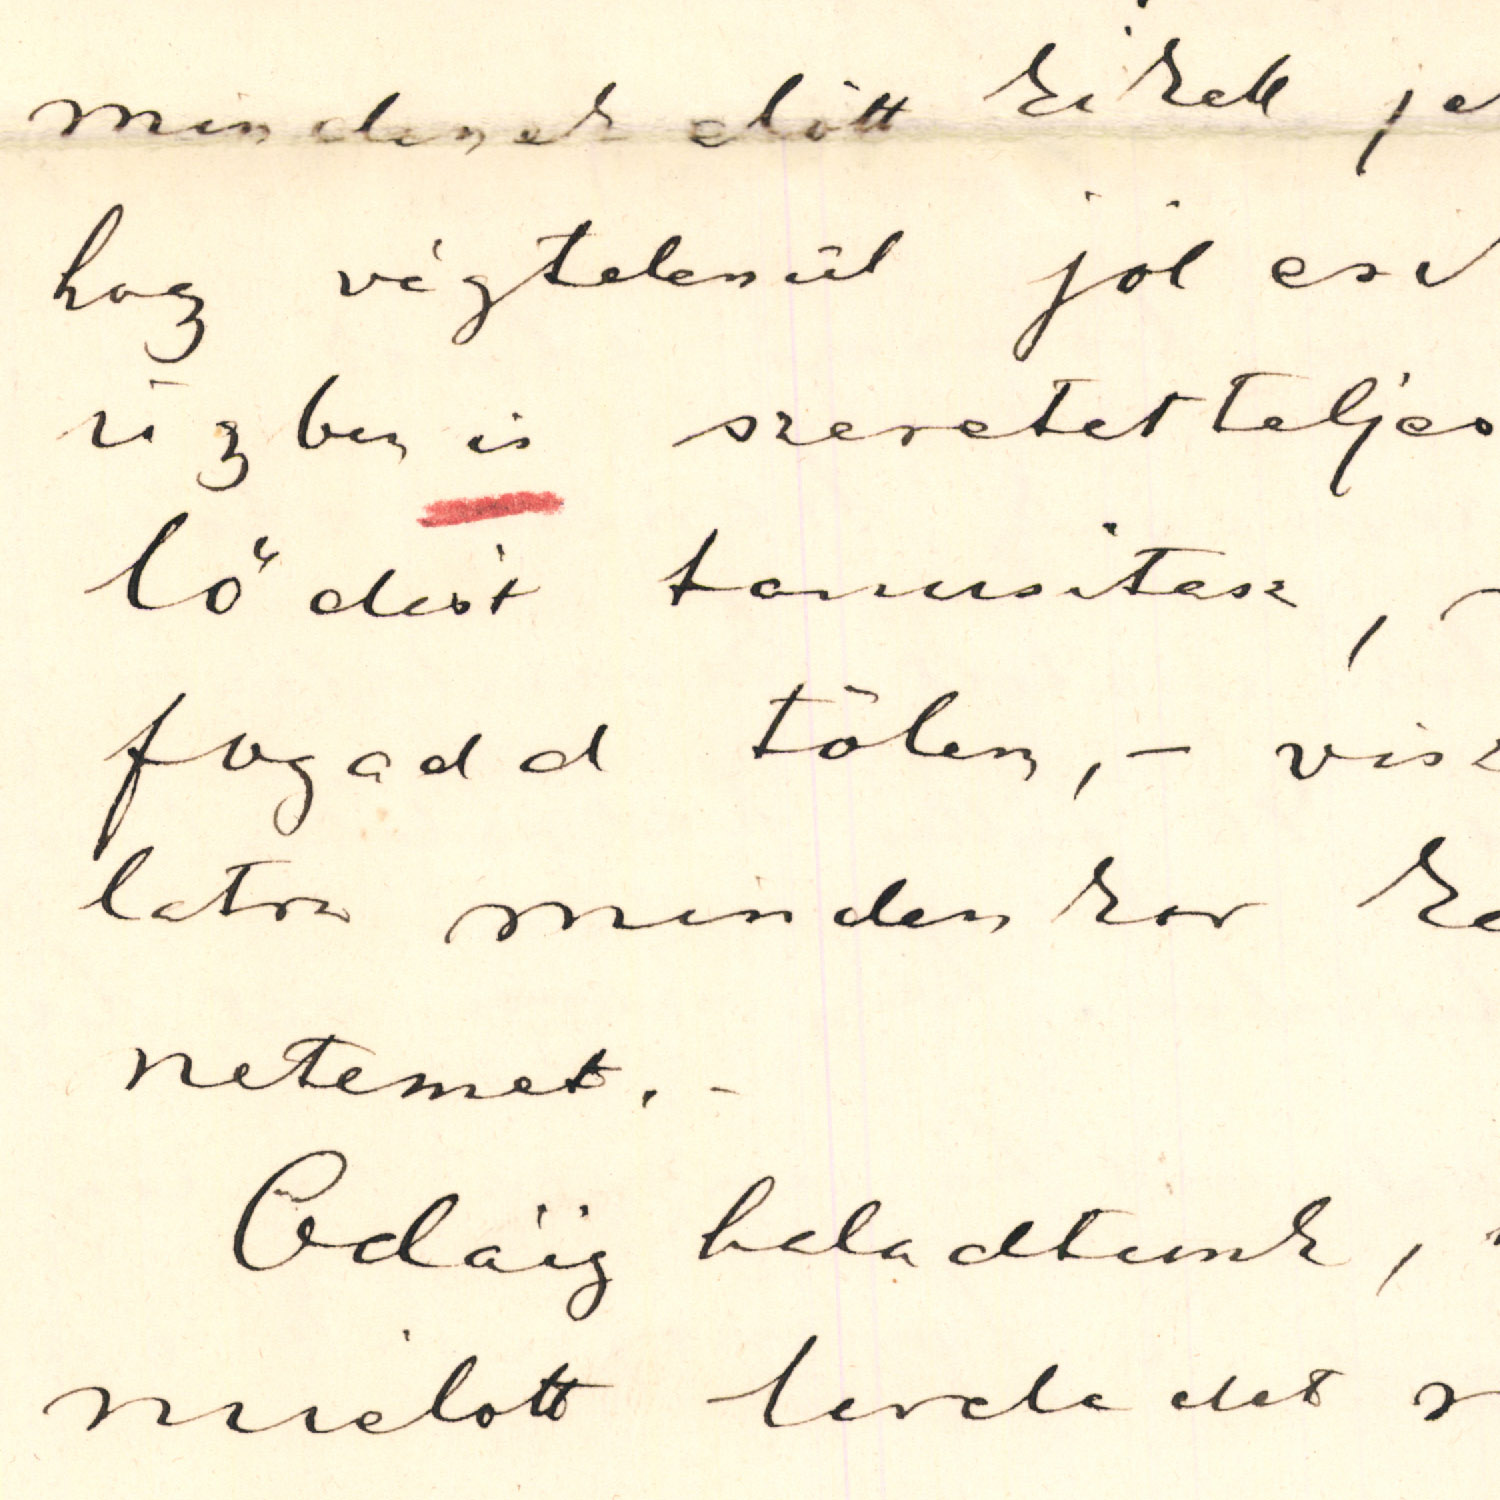 mindenek előtt ki kell je
hogy végtelenül jól esi
ügyben is szeretetteljes
lődést tanusitasz, -
fogadd tőlem, - visz
latra mindenkor
netemet. -
Odáig haladtunk,
mielőtt